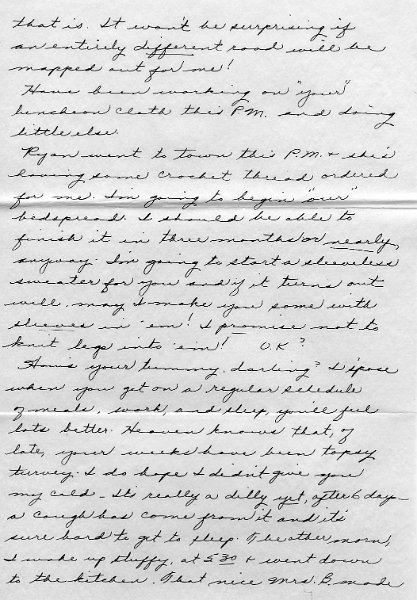 that is. It won't be surprising if
an entirely different road will be
mapped out for me!
Have been working on "your"
luncheon cloth this P.M. and doing
little else.
Ryan went to town this P.M. & she's
having some crochet thread ordered
for me. I'm going to begin "our"
bedspread. I should be able to
finish it in three months or nearly,
anyway. I'm going to start a sleeveless
sweater for you and if it turns out
well, may I make you some with
sleeves in 'em! I promise not to
knit legs into 'em! O.K?
How's your tummy, darling? I s'pose
when you get on a regular schedule
of meals, work, and sleep, you'll feel
lots better. Heaven knows that, of
late, your weeks have been topsy
turvey. I do hope I didn't give you
my cold - It's really a dilly yet, after 6 days -
a cough has come from it and it's
sure hard to get to sleep. T'be other morn,
I woke up stuffy, at 5:30 & went down
to the kitchen. That nice Mrs. B. made